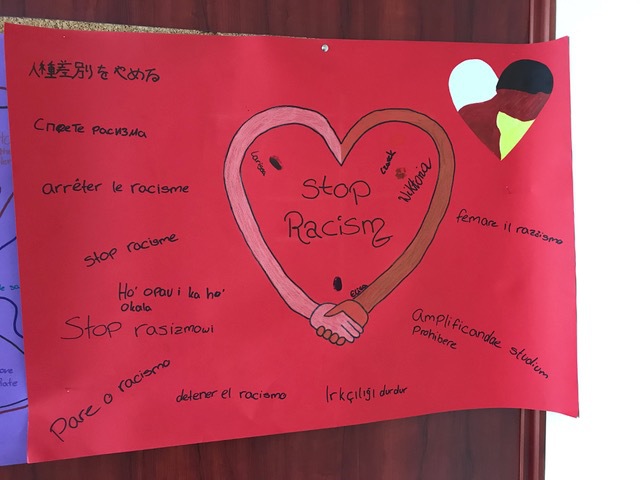 人種差別をやめる
Спрете расизма
arrêter le racisme
stop racisme
Ho' opau i ka ho'
okala
Stop rasizmowi
Pare o racismo
detener el racismo
Irkçılığı durdur
Stop
Racism
Wiktoria
femare il razzismo
Amplificandae studium
Prohibere